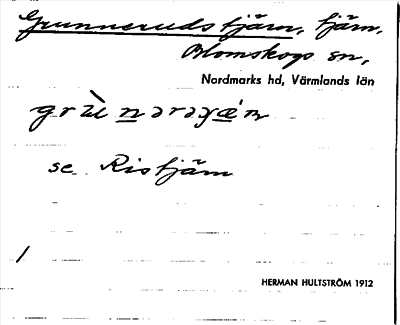 Grunnerudstjärn, tjärn,
Blomskogs sn,
Nordmarks hd, Värmlands län
se Ristjärn
/
HERMAN HULTSTRÖM 1912